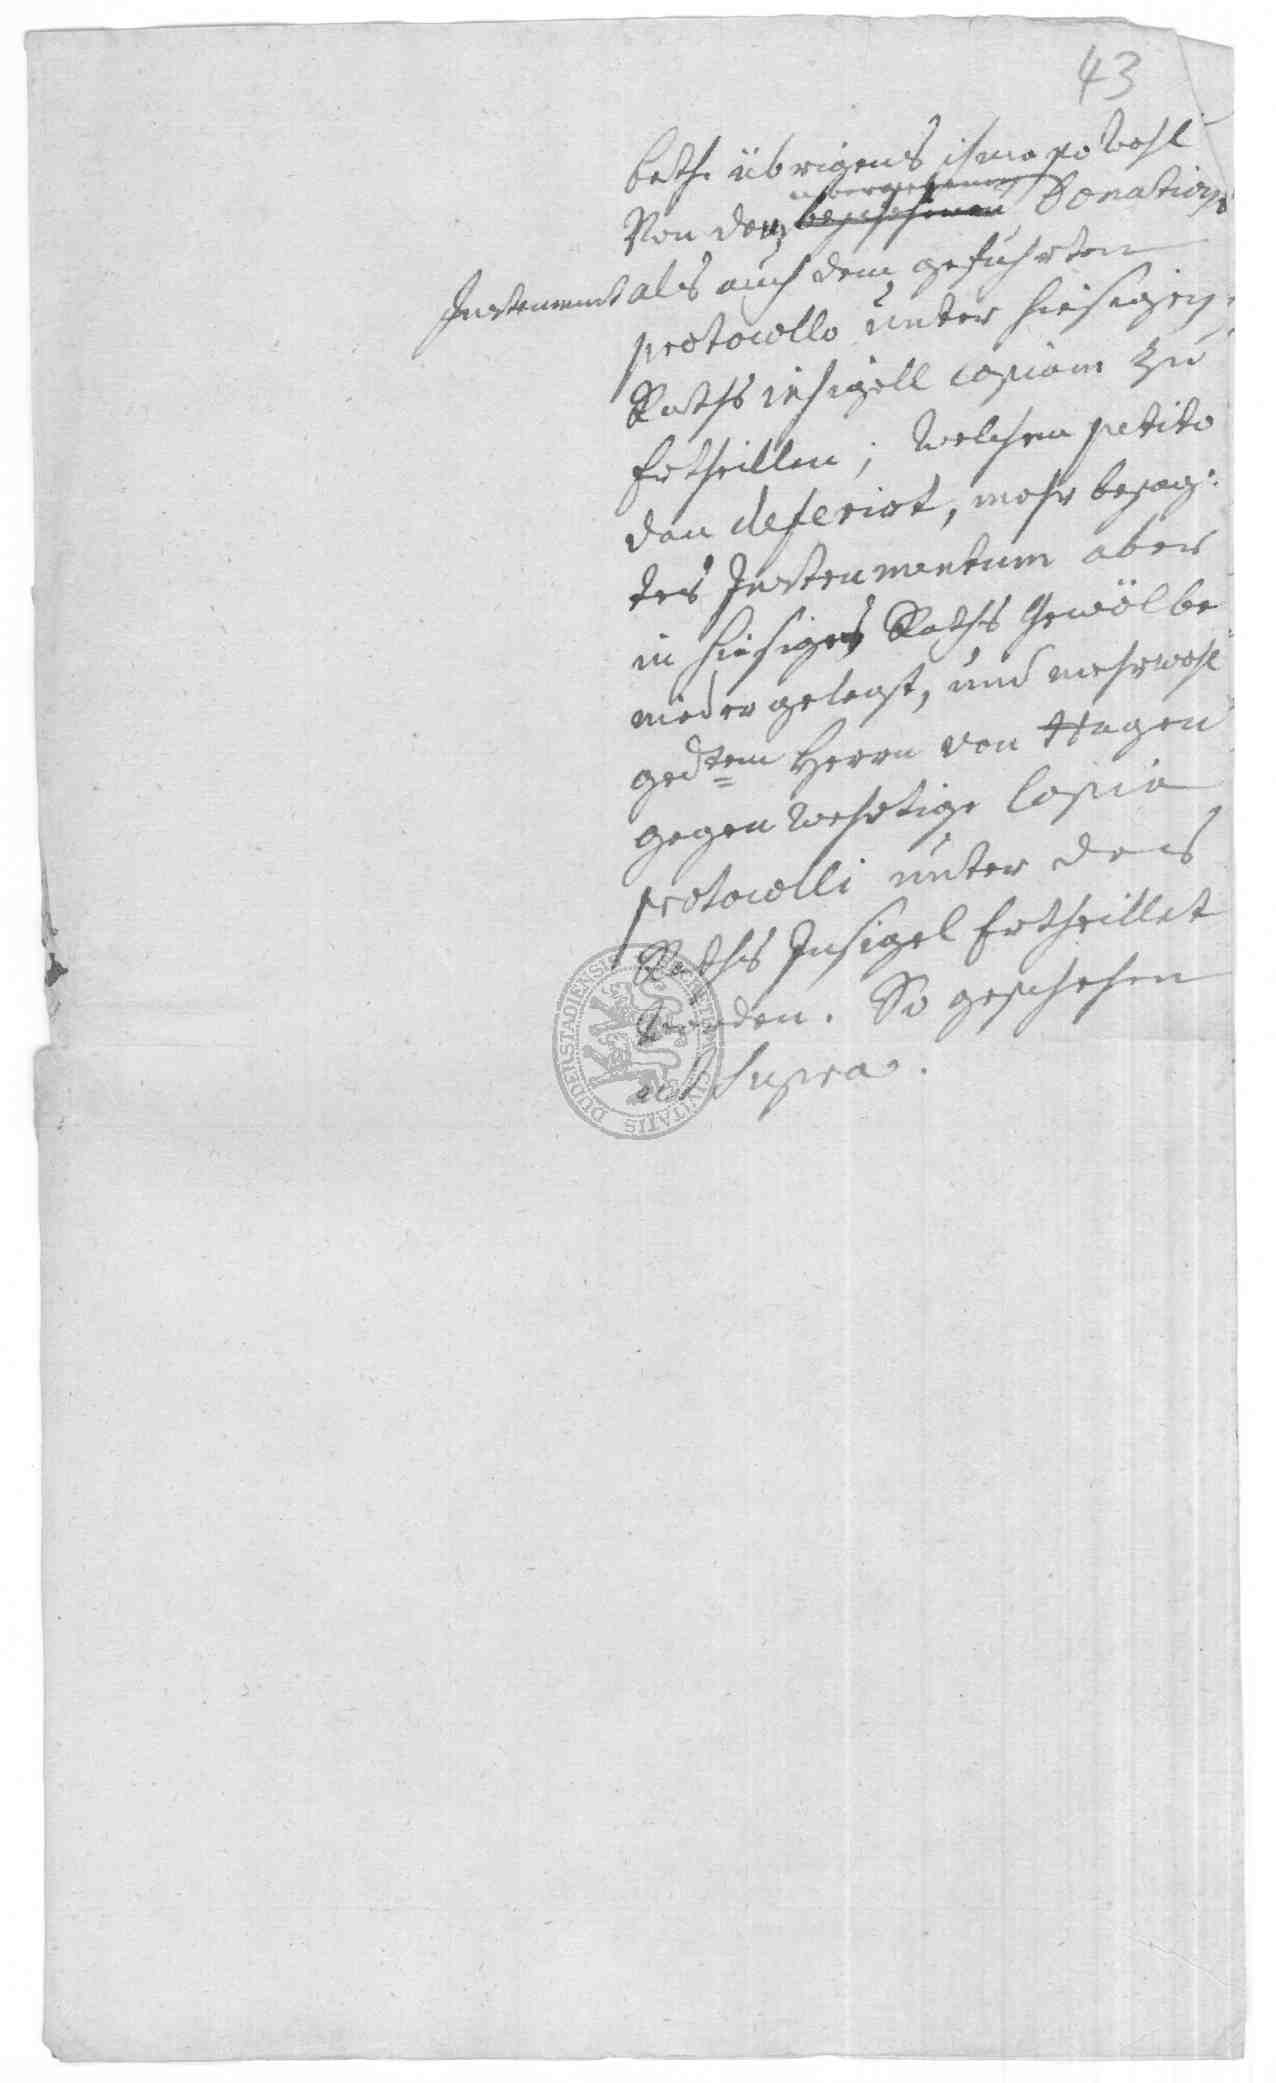 43
bethe übrigens ihme so wohl
von dem übergebenen Donations
Instrument als auch dem geführten
protocollo unter hiesigem
Raths insigell copiam zu
Ertheillen; welchem petito
dan deferirt, mehr besag:
tes Instrumentum aber
in hiesiges Raths Gewölbe
niedergelegt, und mehrwohl
gedtem Herrn von Hagen
gegenwertige Copia
protocolli unter des
Raths Insigel Ertheillet
worden. So geschehen
ut supra.
DUDERSTADIENSIS CIVITATIS